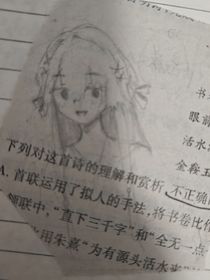 书
眼前
活水
金叠玉
下列对这首诗的理解和赏析,不正确
A.首联运用了拟人的手法,将书卷比作
颔联中,“直下三千字”和“全无一点
用朱熹“为有源头活水